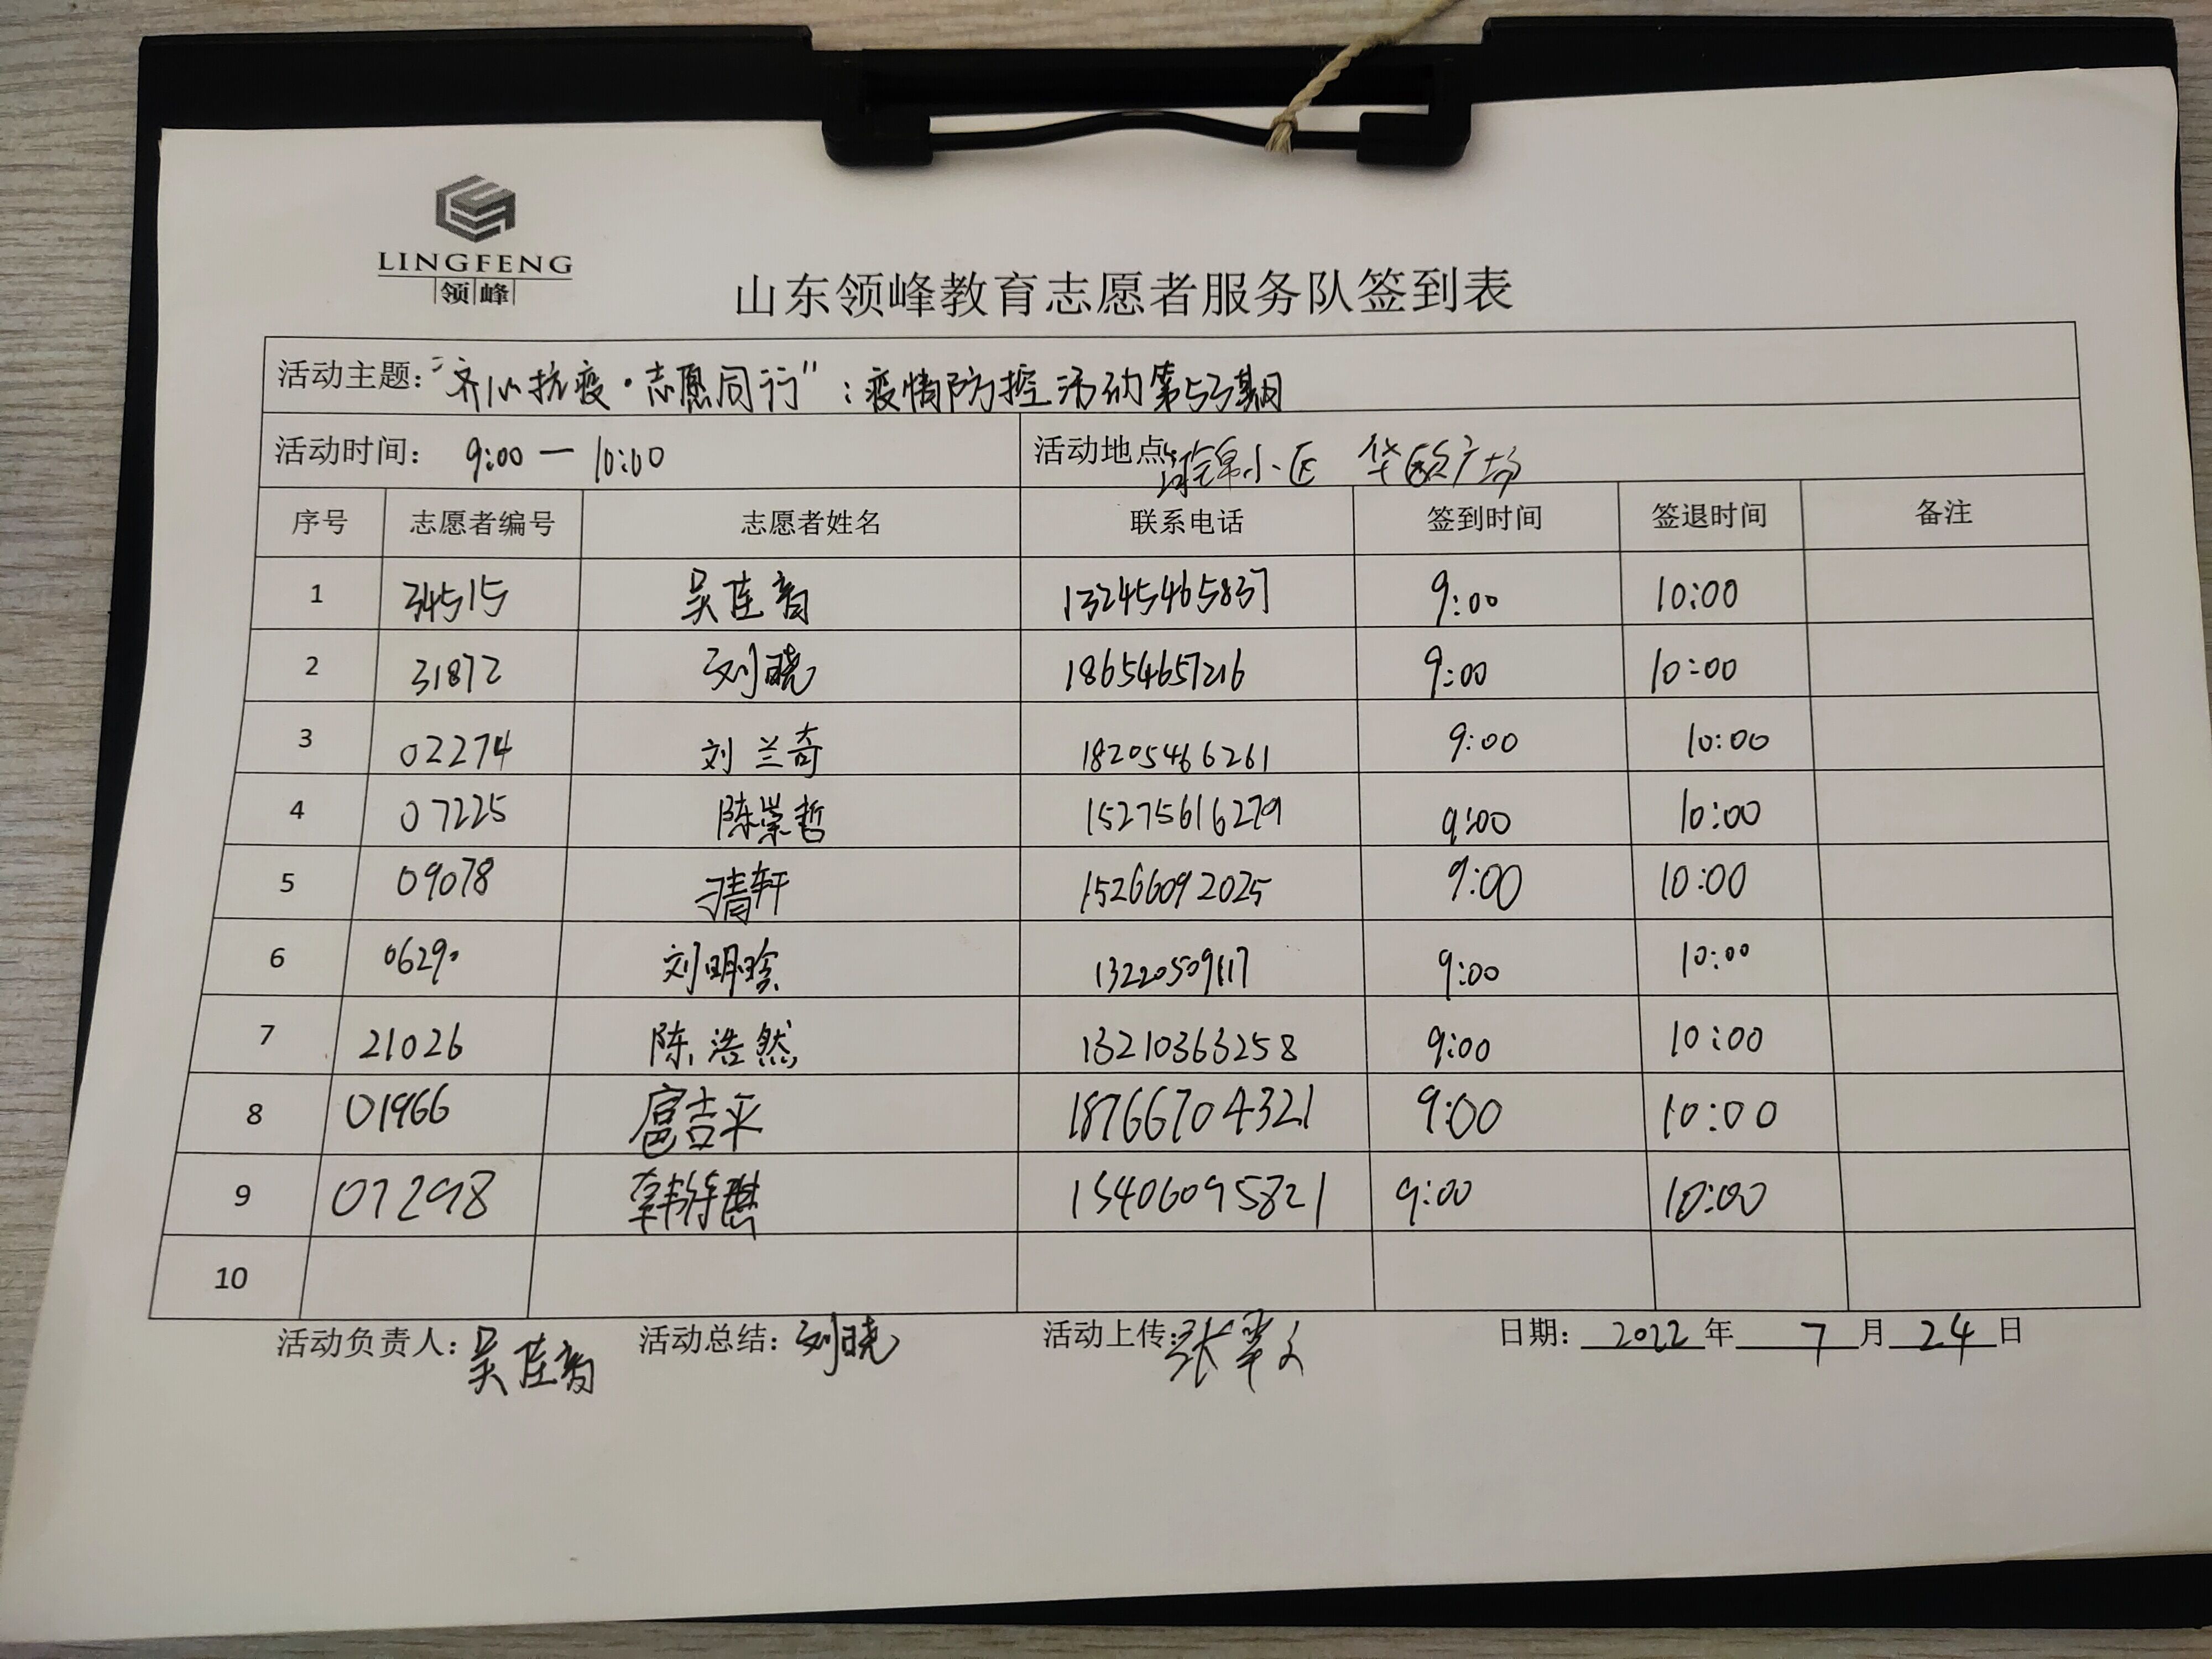 LINGFENG
领峰
山东领峰教育志愿者服务队签到表
活动主题："齐心抗疫·志愿同行"：疫情防控活动第53期
活动时间： 9:00 — 10:00 活动地点 锦小区 华欧广场
序号 志愿者编号 志愿者姓名 联系电话 签到时间 签退时间 备注
1 34515 吴莲香 13245465837 9:00 10:00
2 31872 刘晓 18654657216 9:00 10:00
3 02274 刘兰奇 18205466261 9:00 10:00
4 07225 陈崇哲 15275616279 9:00 10:00
5 09078 轩 15266092025 9:00 10:00
6 06290 刘明 13220509117 9:00 10:00
7 21026 陈浩然 13210363258 9:00 10:00
8 01966 扈吉平 18766704321 9:00 10:00
9 07298 韩 15406095821 9:00 10:00
10
活动负责人：吴莲香 活动总结：刘晓 活动上传：张 日期：2022年7月24日